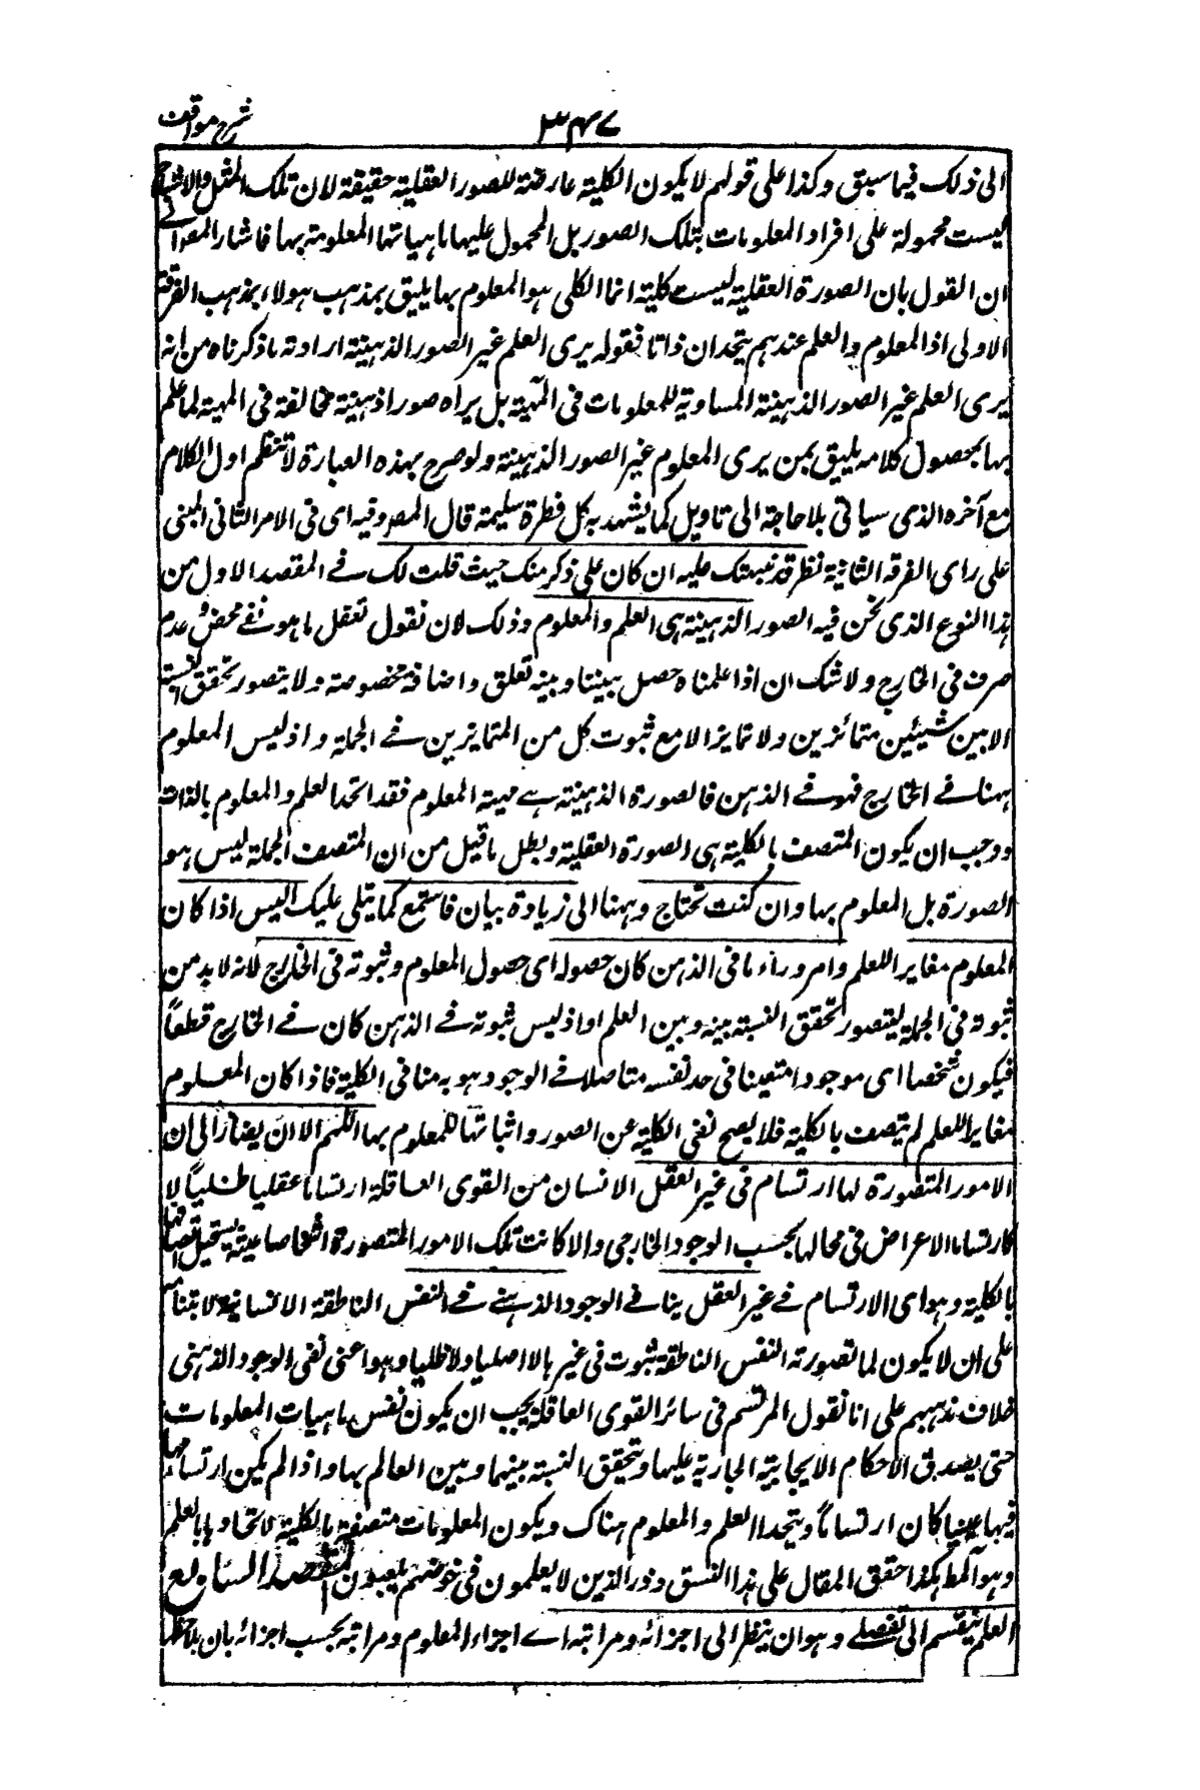 شرح مواقف
٣٤٧
الى ذلك فيما سبق وكذا على قولهم لا يكون الكلية عارضة للصور العقلية حقيقة لان تلك المثل والاشباح
ليست محمولة على افراد المعلومات بتلك الصور بل المحمول عليها ماهياتها المعلومة بها فاشار المصر الى
ان القول بان الصورة العقلية ليست كلية انما الكلى هو المعلوم بها يليق بمذهب هولاء بمذهب الفرقة
الاولى اذ المعلوم والعلم عندهم يتحدان ذاتا فقوله يرى العلم غير الصور الذهنية اراد ته ما ذكرناه من انه
يرى العلم غير الصور الذهنية المساوية للمعلومات فى المهية بل يراه صورا ذهنية مخالفة فى المهية لما علم
بها بمحصول كلامه يليق بمن يرى المعلوم غير الصور الذهنية ولو صرح بهذه العبارة لانتظم اول الكلام
مع آخره الذى سياتى بلا حاجة الى تاويل كما يشهد به كل فطرة سليمة قال المصر وفيه اى فى الامر الثانى المبنى
على راى الفرقه الثانية نظر قد نبهتك عليه ان كان على ذكر منك حيث قلت لك فے المقصد الاول من
هذا النوع الذى نحن فيه الصور الذهنية هى العلم والمعلوم وذلك لان نقول تعقل ما هو نفے محض وعدم
صرف فى الخارج ولا شك ان اذا علمناه حصل بيننا وبينه تعلق واضافة مخصوصة ولا يتصور تحقق النسبة
الا بين شيئين متمائزين ولا تمايز الا مع ثبوت كل من المتمايزين فے الجملة واذ ليس المعلوم
ههنا فے الخارج فهو فے الذهن فالصورة الذهنية هے مهية المعلوم فقد اتحد العلم والمعلوم بالذات
ووجب ان يكون المتصف بالكلية هى الصورة العقلية وبطل ما قيل من ان المتصف الجملة ليس هو
الصورة بل المعلوم بها وان كنت تحتاج وههنا الى زيادة بيان فاستمع كما يتلى عليك اليس اذا كان
المعلوم مغايرا للعلم وامر وراء ما فى الذهن كان حصوله اى حصول المعلوم وثبوته فى الخارج لانه لابد من
ثبوته فى الجملة ليتصور تحقق النسبة بينه وبين العلم او اذ ليس ثبوته فے الذهن كان فے الخارج قطعاً
فيكون شخصا اى موجودا متعينا فى حد نفسه متاصلا فے الوجود وهو به منافى الكلية فاذا كان المعلوم
مغايرا للعلم لم يتصف بالكلية فلا يصح نفى الكلية عن الصور واثباتها للمعلوم بها اللهم الا ان يصار الى ان
الامور المتصورة لها ارتسام فى غير العقل الانسان من القوى العاقلة ارتساما عقليا ظلياً لا
كارتسام الاعراض فى محالها بحسب الوجود الخارجى والا كانت تلك الامور المتصورة اشخاصا عينية يستحيل اتصافها
بالكلية وهو اى الارتسام فے غير العقل ينافے الوجود الذهنے فے النفس الناطقة الانسانية لابتنائه
على ان لا يكون لما تصورته النفس الناطقة ثبوت فى غيرها لا اصليا ولا ظليا وهو اعنى نفى الوجود الذهنى
خلاف مذهبهم على انا نقول المرتسم فى سائر القوى العاقلة يجب ان يكون نفس ماهيات المعلومات
حتى يصدق الاحكام الايجابية الجارية عليها ويتحقق النسبة بينهما وبين العالم بها واذا لم يكن ارتسامها
فيها عينيا كان ارتساماً ويتحد العلم والمعلوم هناك ويكون المعلومات متصفة بالكلية لاتحادها بالعلم
وهو المط هكذا حقق المقال على هذا النسق وذر الذين لا يعلمون فى خوضهم يلعبون المقصد السابع
العلم ينقسم الى تفصيلے وهو ان ينظر الى اجزائه ومراتبه اے اجزاء المعلوم ومراتبه بحسب اجزائه بان يلاحظها